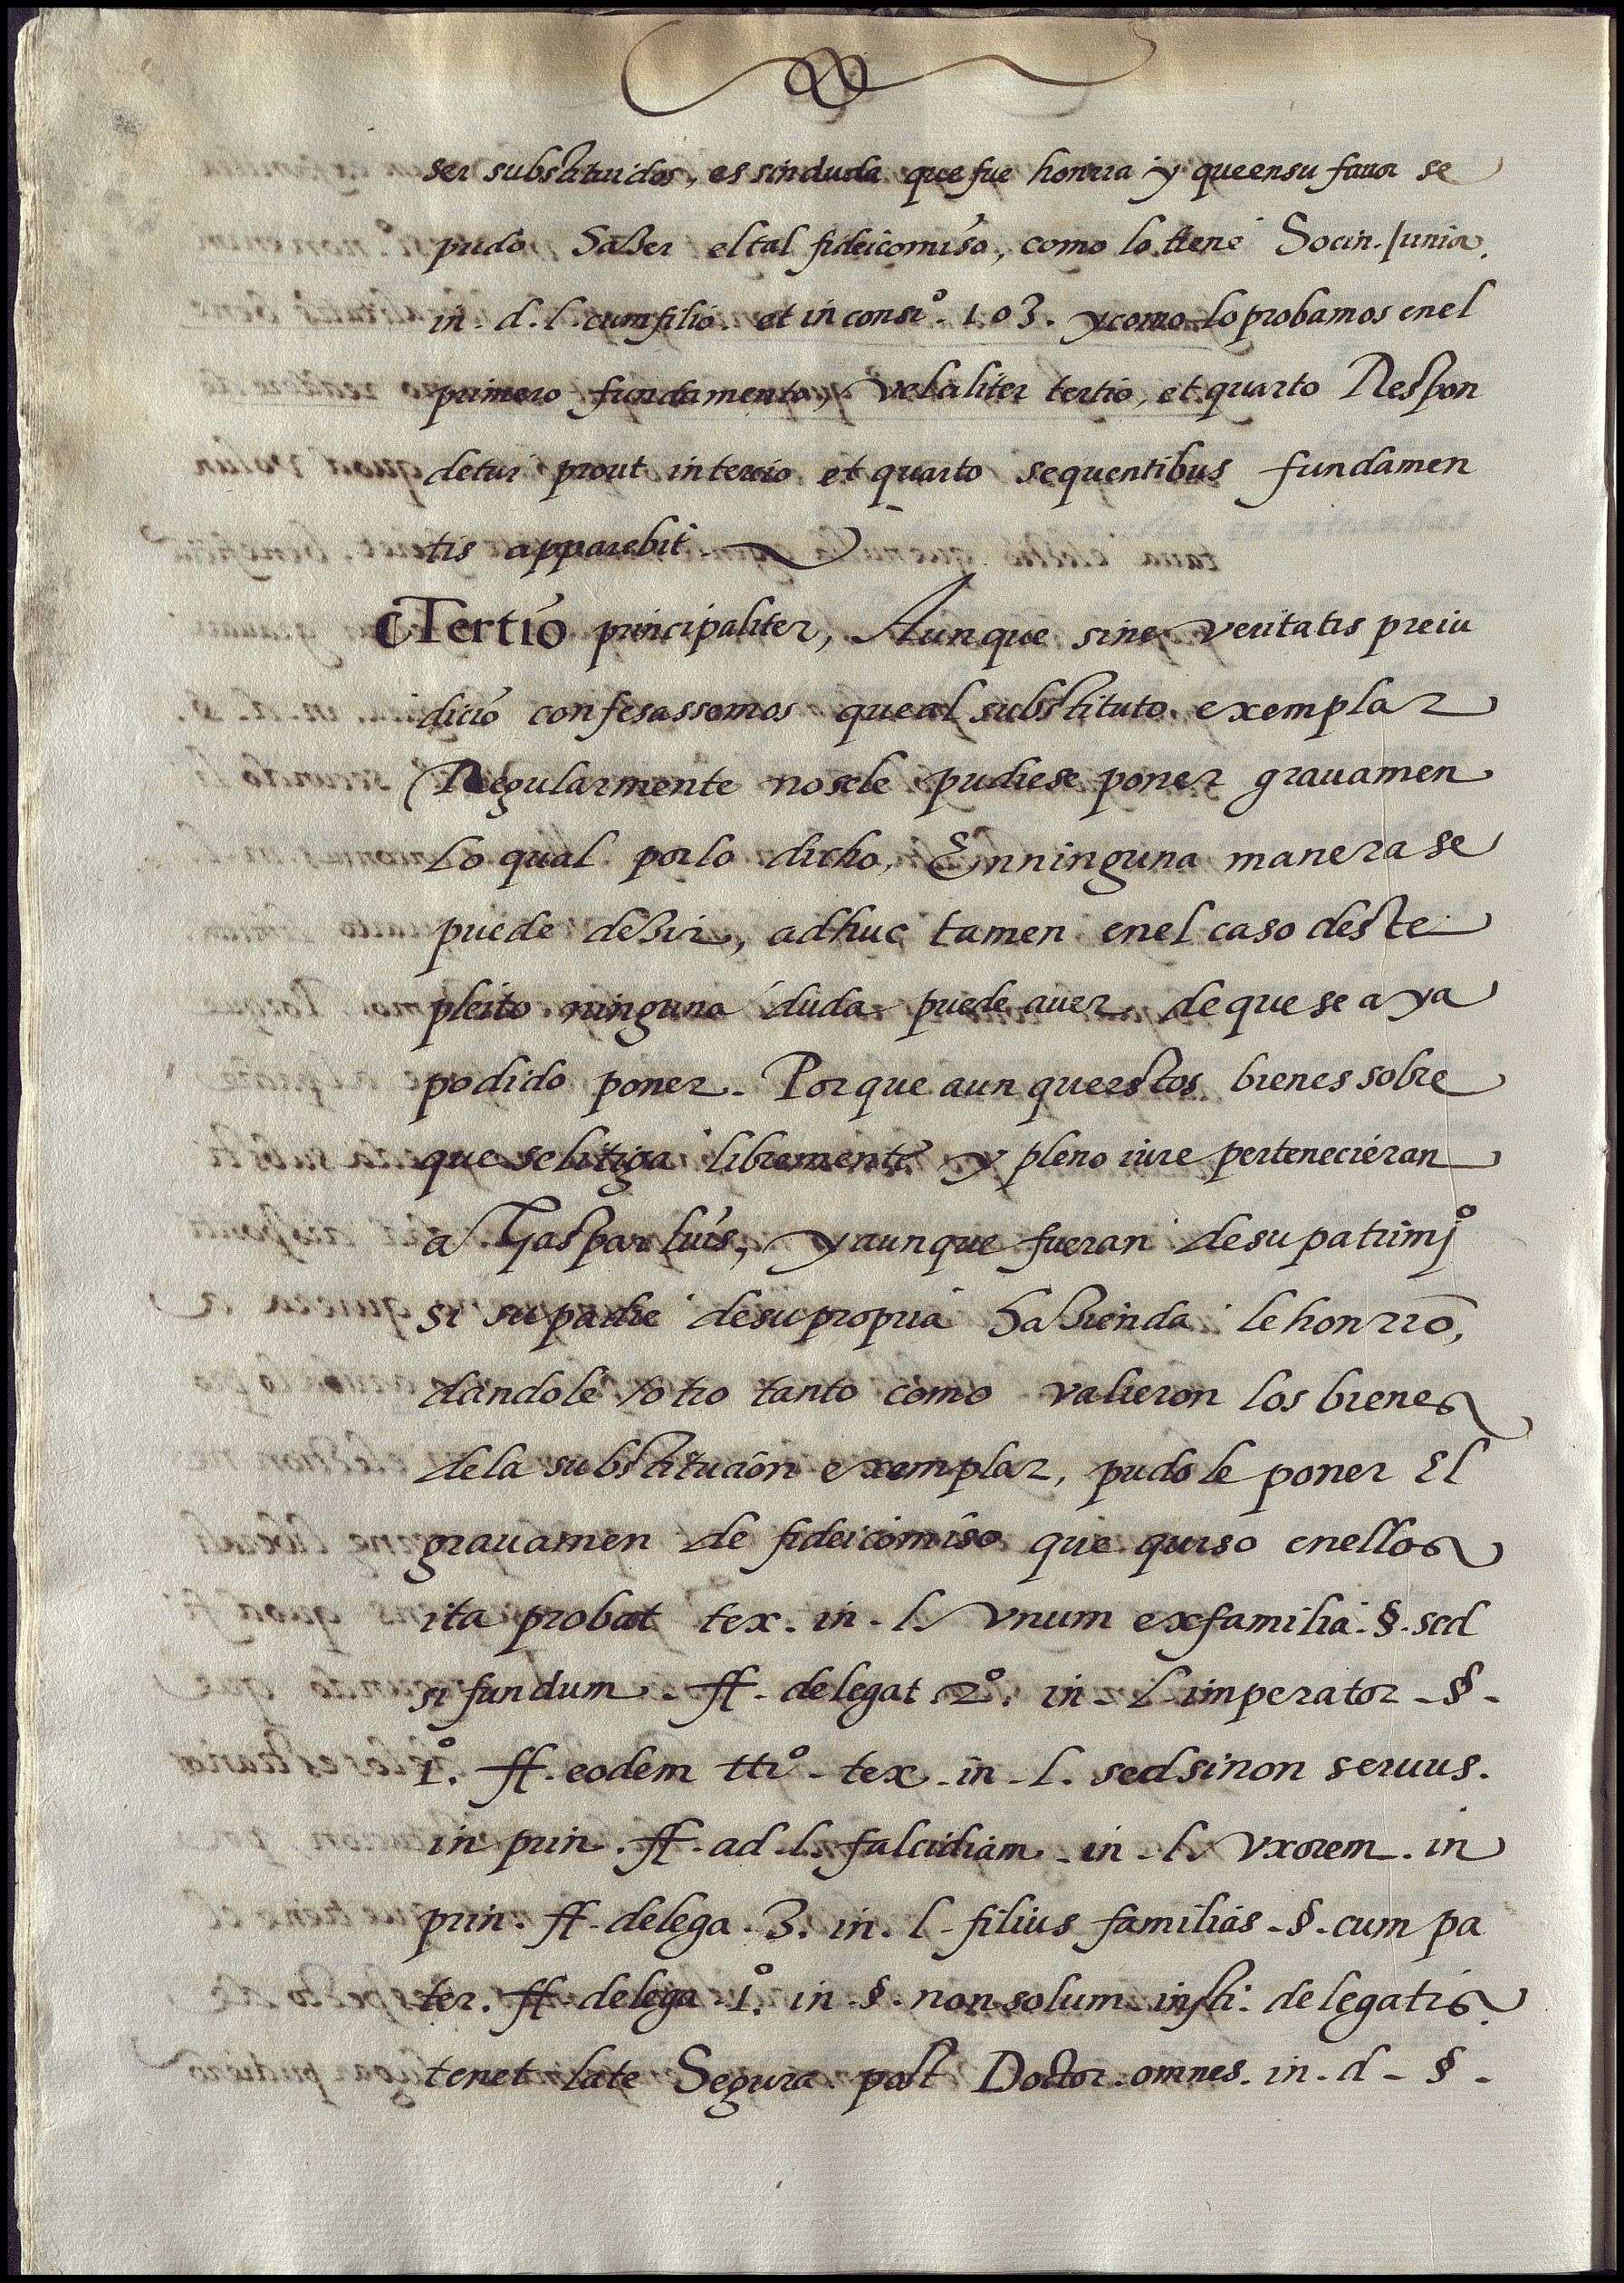 ser substituidos, es sin duda que fue honrra y que en su fauor se
pudo hazer el tal fideicomiso, como lo tiene Socin. Iunior.
in. d. l. cum filio. et in consiº. 103. y como lo probamos en el
primero fundamento, vel aliter tertio, et quarto Respon
detur prout in tercio et quarto sequentibus fundamen
tis apparebit.
Tertio principaliter, Aunque sine veritatis preiu
dicio confesassemos que al substituto exemplar
Regularmente no se le pudiese poner grauamen
Lo qual por lo dicho, En ninguna manera se
puede dezir, adhuc tamen en el caso deste
pleito ninguna duda puede auer de que se aya
podido poner. Porque aunque estos bienes sobre
que se litiga libremente y pleno iure pertenecieran
a Gaspar luis, y aunque fueran de su patrimjº
si su padre de su propria hazienda le honrro,
dandole otro tanto como valieron los bienes
de la substitucion exemplar, pudo le poner El
grauamen de fideicomiso que quiso en ellos
ita probat tex. in. l. vnum ex familia. §. sed
si fundum. ff. de legat 2º. in. l. imperator. §.
1º. ff. eodem ttº. tex. in. l. sed si non seruus.
in prin. ff. ad. l. falcidiam. in. l. vxorem. in
prin. ff. de lega. 3. in. l. filius familias. §. cum pa
ter. ff. de lega. 1º. in. §. non solum insti. de legatis.
tenet late Segura post Doctor. omnes. in. d. §.